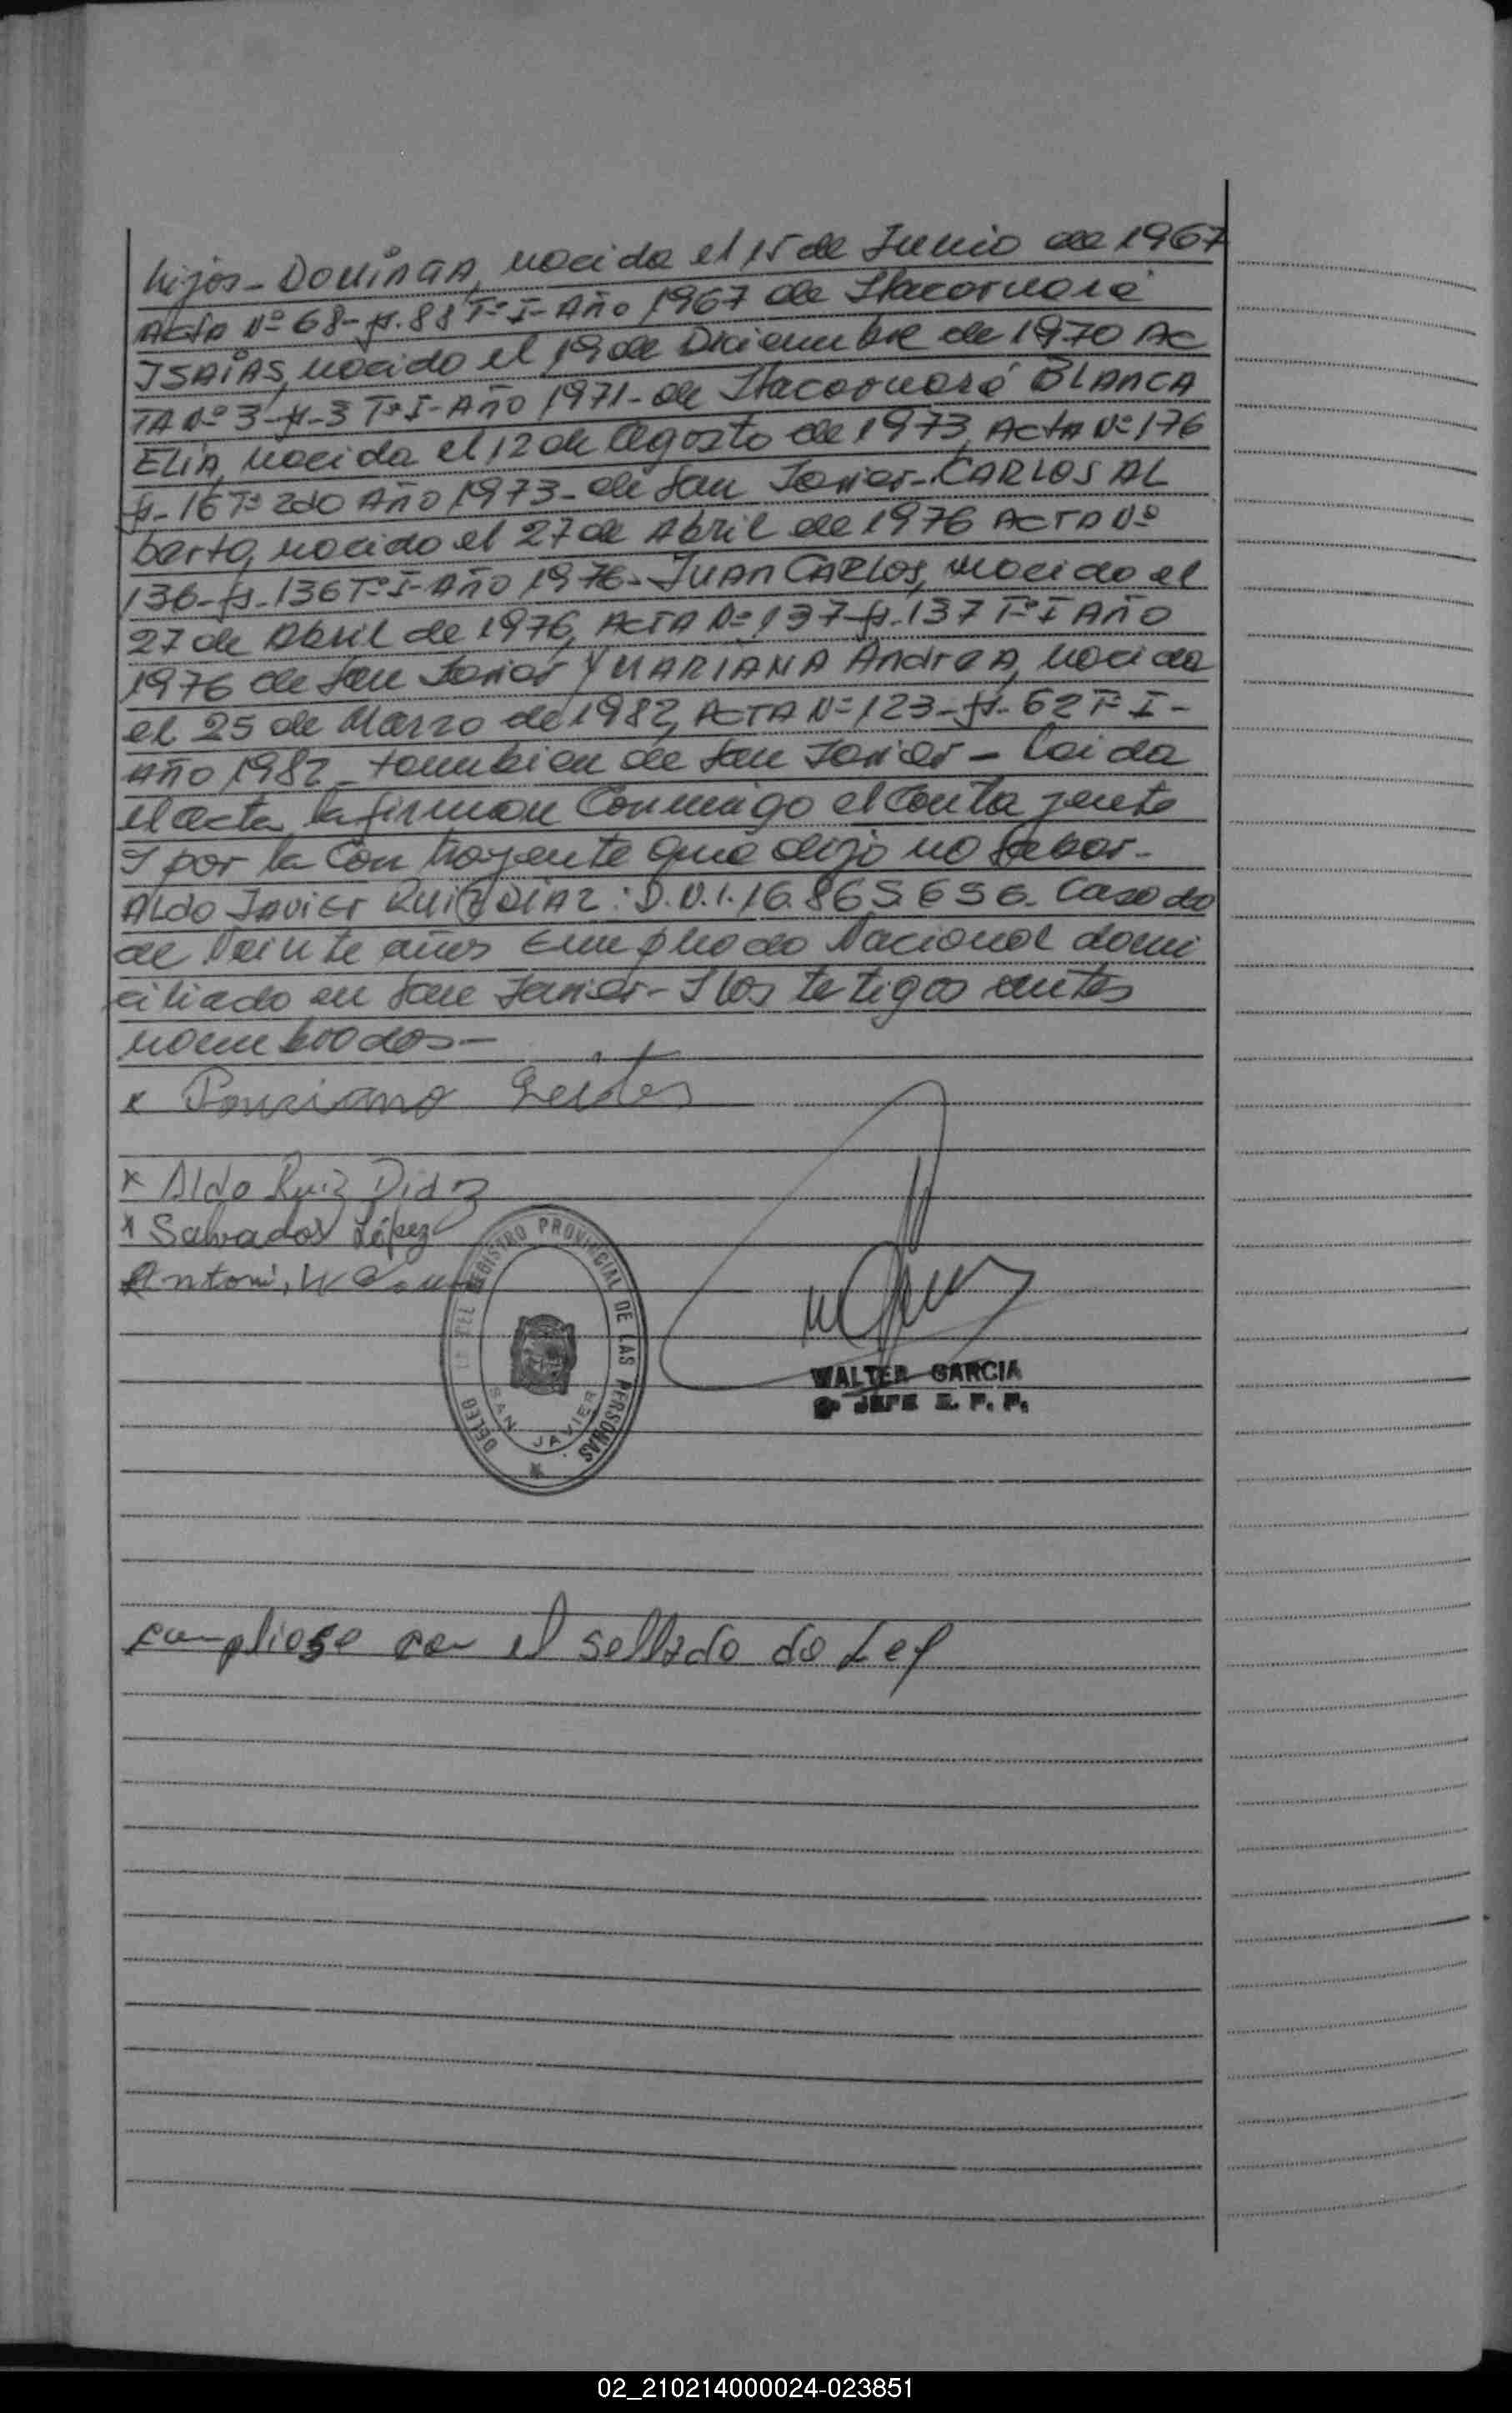 hijos- DOMINGA, nacida el 15 de Junio de 1967
ACTA Nº 68- fº. 88 Tº I- Año 1967 de Itacaruaré
ISAIAS, nacido el 19 de Diciembre de 1970 AC
TA Nº 3- fº- 3 Tº I- Año 1971- de Itacaruaré BLANCA
ELIA, nacida el 12 de Agosto de 1973, ACTA Nº 176
fº- 16 Tº 2do Año 1973- de San Javier- CARLOS AL
berto, nacido el 27 de Abril de 1976 ACTA Nº
136- fº- 136 Tº I- Año 1976- JUAN CARLOS, nacido el
27 de Abril de 1976, ACTA Nº 137- fº- 137 Tº I Año
1976 de San Javier Y MARIANA Andrea, nacida
el 25 de Marzo de 1982, ACTA Nº 123- fº- 62 Tº I-
Año 1982- tambien de San Javier- Leida
el acta, la firman Conmigo el Contrayente
Y por la Contrayente que dijo no saber-
Aldo Javier RUIZ DIAZ: D.N.I. 16.865.656- Casado
de Veinte años Empleado Nacional domi
ciliado en San Javier- Y los testigos antes
nombrados-
x Ponciano
x Aldo Ruiz Diaz
x Salvador López
WALTER GARCIA
JEFE E. P. P.
REGISTRO PROVINCIAL DE LAS PERSONAS
SAN JAVIER
cumpliose con el sellado de Ley
02_210214000024-023851